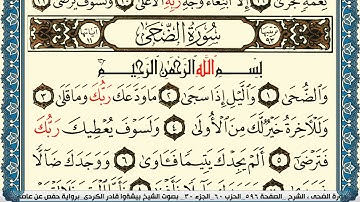 نِّعْمَةٍ تُجْزَىٰٓ ۝١٩ إِلَّا ٱبْتِغَآءَ وَجْهِ رَبِّهِ ٱلْأَعْلَىٰ ۝٢٠ وَلَسَوْفَ يَرْضَىٰ ۝٢١
سُورَةُ الضُّحَىٰ
بِسْمِ ٱللَّهِ ٱلرَّحْمَٰنِ ٱلرَّحِيمِ
وَٱلضُّحَىٰ ۝١ وَٱلَّيْلِ إِذَا سَجَىٰ ۝٢ مَا وَدَّعَكَ رَبُّكَ وَمَا قَلَىٰ ۝٣
وَلَلْءَاخِرَةُ خَيْرٌ لَّكَ مِنَ ٱلْأُولَىٰ ۝٤ وَلَسَوْفَ يُعْطِيكَ رَبُّكَ
فَتَرْضَىٰٓ ۝٥ أَلَمْ يَجِدْكَ يَتِيمًا فَـَٔاوَىٰ ۝٦ وَوَجَدَكَ ضَآلًّا
الضحى ، الشرح _ الصفحة ٥٩٦_ الحزب ٦٠_ الجزء ٣٠_ بصوت الشيخ بيشەوا قادر الكردي_ برواية حفص عن عاصم